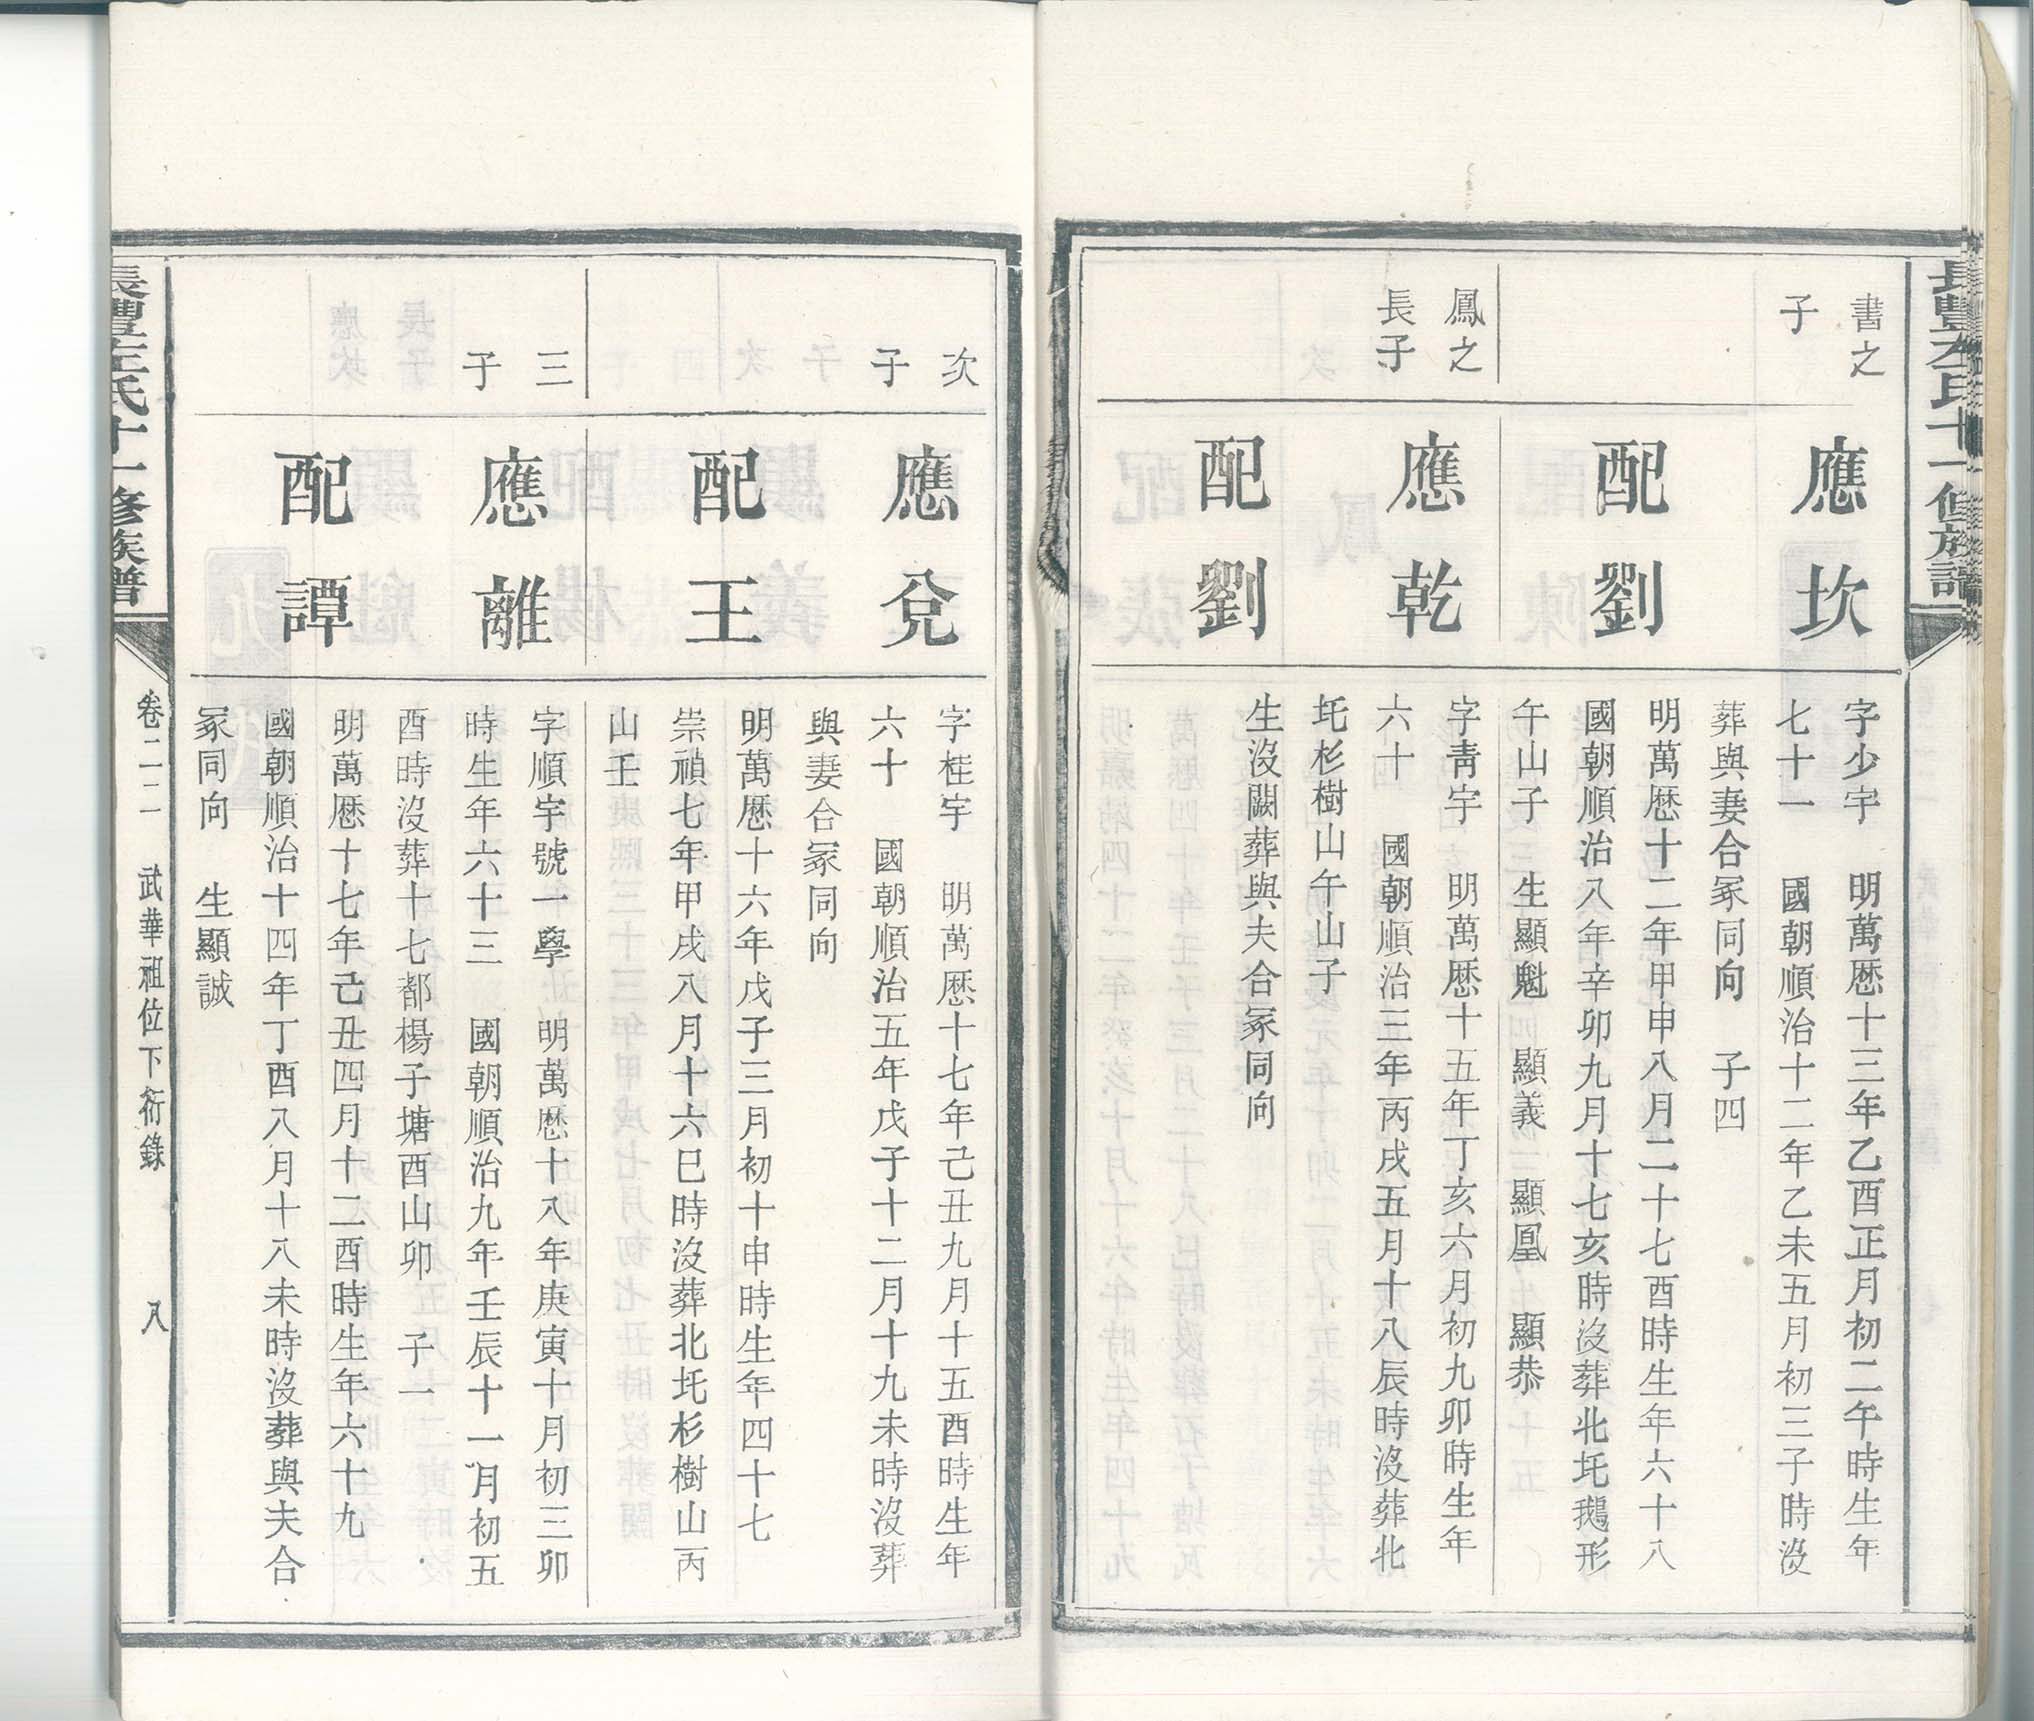 長豐左氏十一修族譜
書之
子
應坎
字少宇　明萬厯十三年乙酉正月初二午時生年
七十一　國朝順治十二年乙未五月初三子時沒
葬與妻合冢同向　子四
配劉
明萬厯十二年甲申八月二十七酉時生年六十八
國朝順治八年辛卯九月十七亥時沒葬北圫鵝形
午山子　生顯魁　顯義　顯凰　顯恭
鳳之
長子
應乾
字青宇　明萬厯十五年丁亥六月初九卯時生年
六十　國朝順治三年丙戌五月十八辰時沒葬北
圫杉樹山午山子
配劉
生沒闕葬與夫合冢同向
次
子
應兌
字桂宇　明萬厯十七年己丑九月十五酉時生年
六十　國朝順治五年戊子十二月十九未時沒葬
與妻合冢同向
配王
明萬厯十六年戊子三月初十申時生年四十七
崇禎七年甲戌八月十六巳時沒葬北圫杉樹山丙
山壬
三
子
應離
字順宇號一學　明萬厯十八年庚寅十月初三卯
時生年六十三　國朝順治九年壬辰十一月初五
酉時沒葬十七都楊子塘酉山卯　子一
配譚
明萬厯十七年己丑四月十二酉時生年六十九
國朝順治十四年丁酉八月十八未時沒葬與夫合
冢同向　生顯誠
長豐左氏十一修族譜
卷二二　武華祖位下衍錄　八